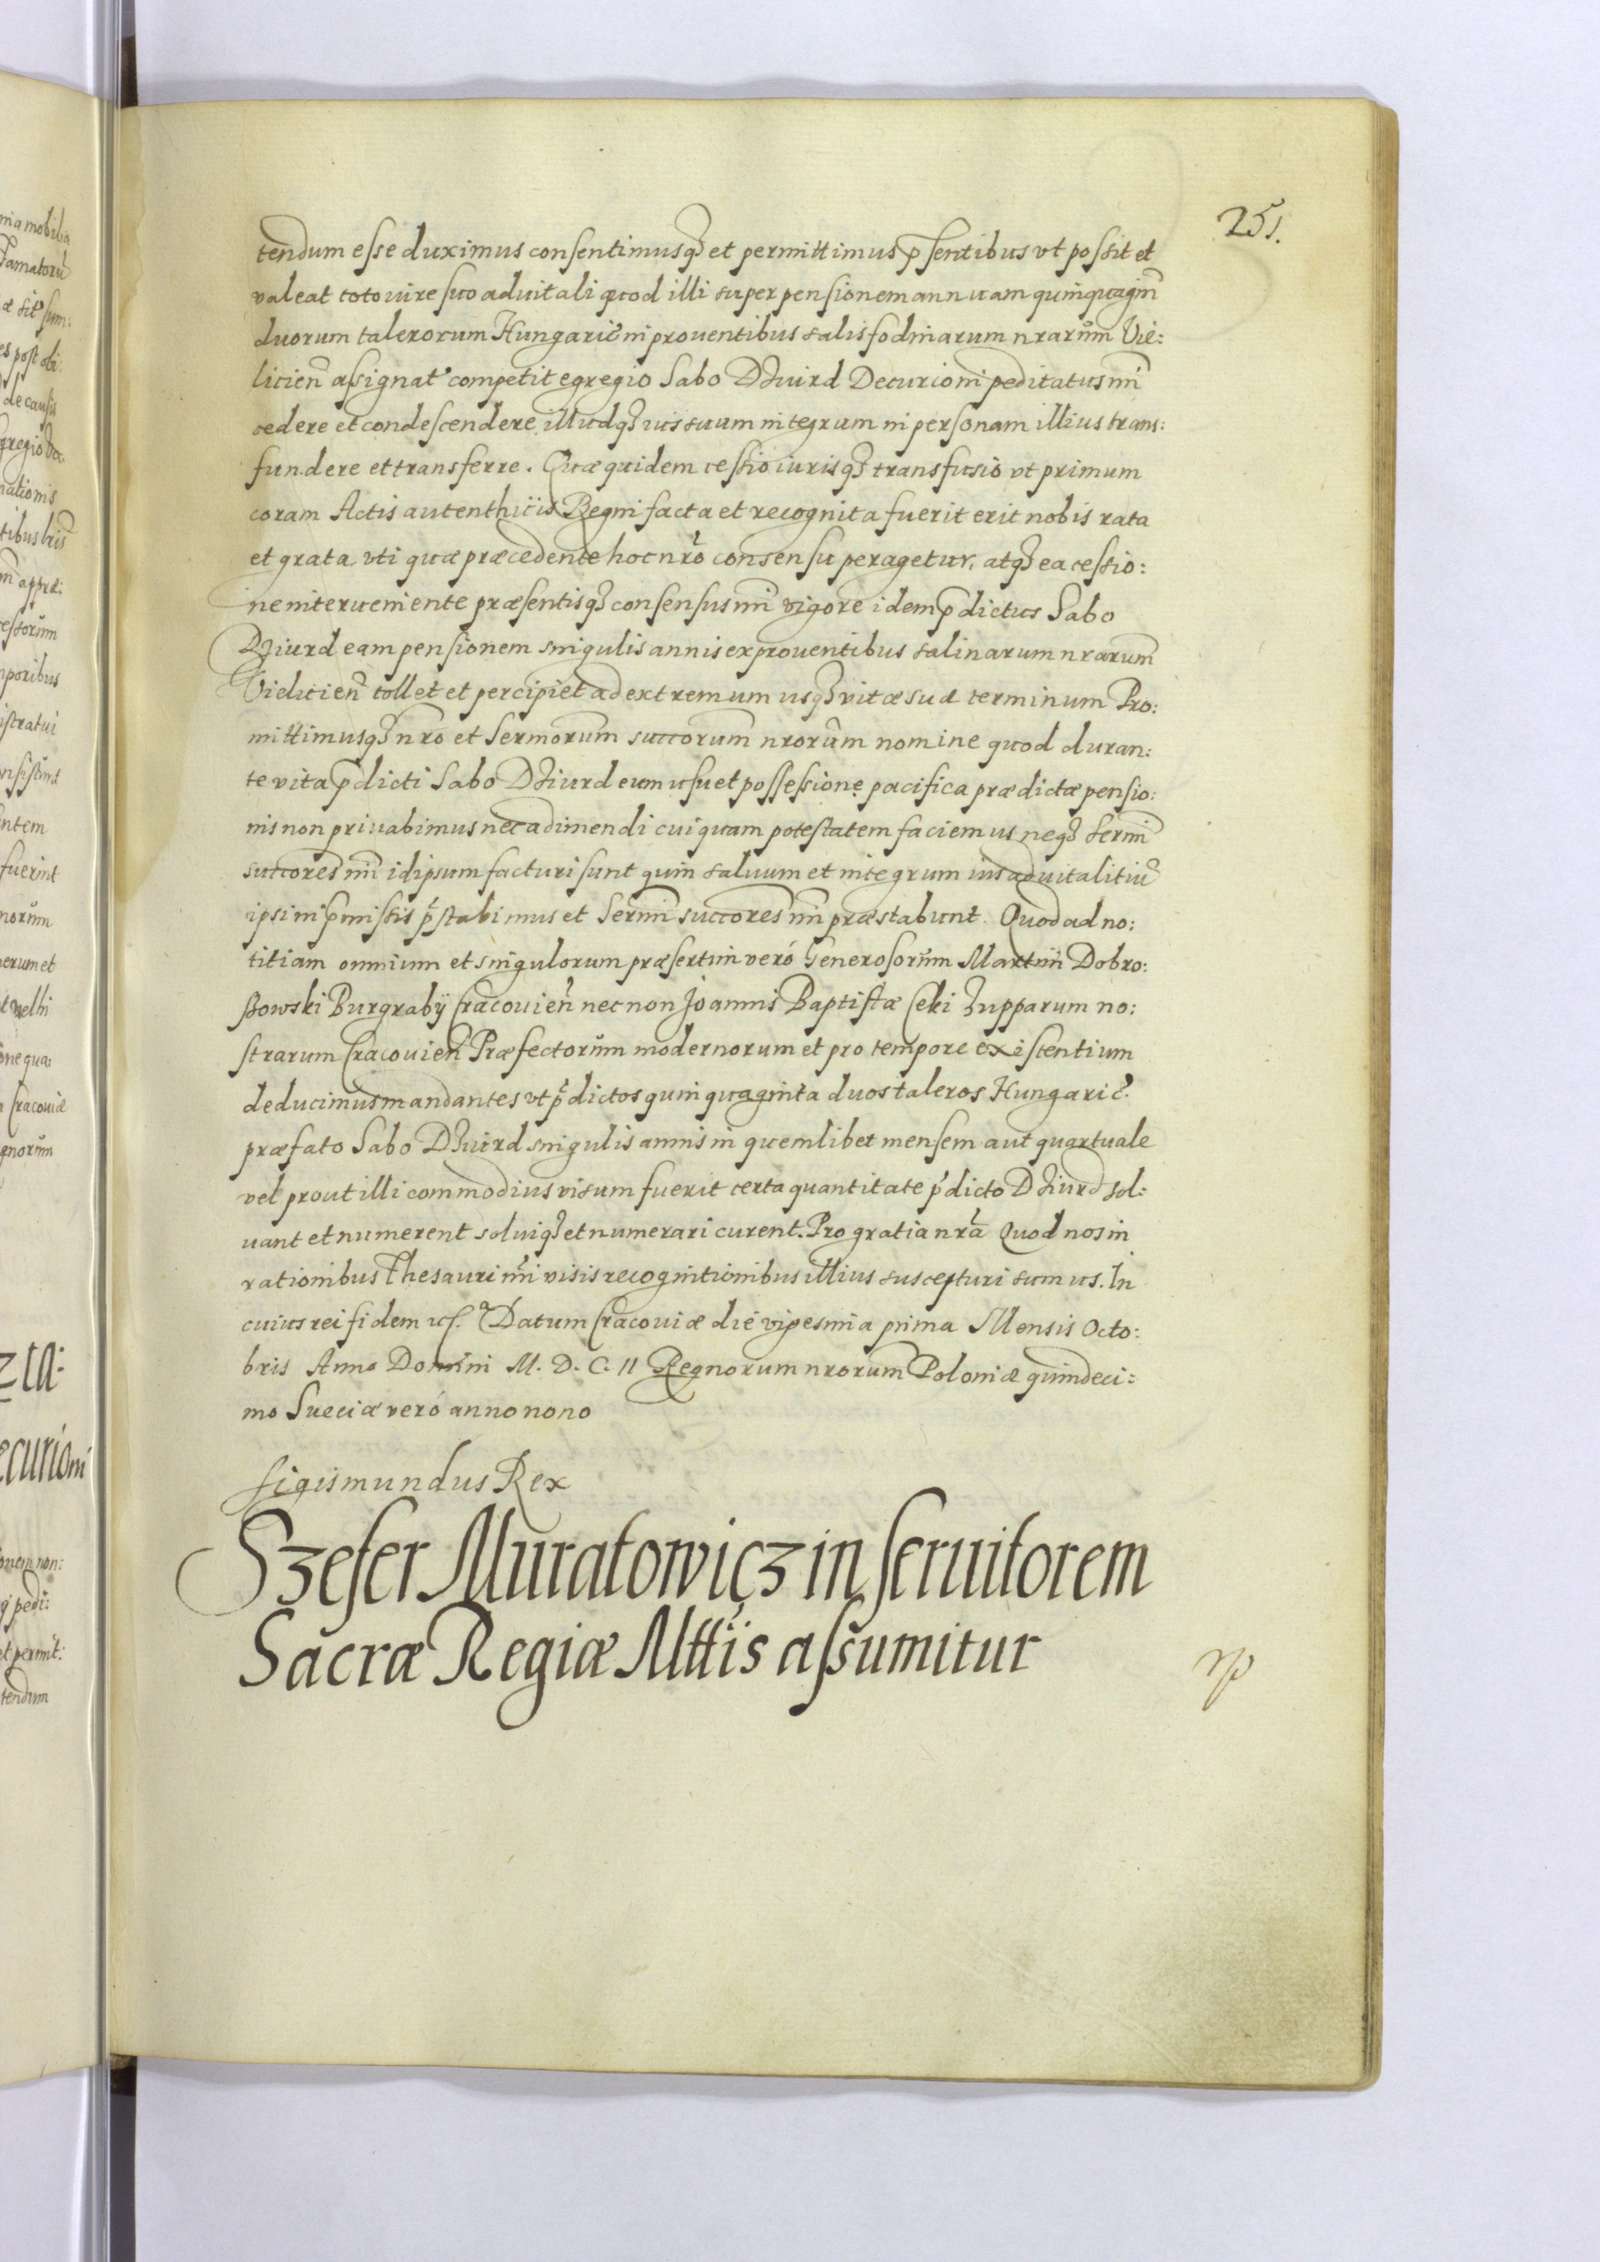 251.
tendum esse duximus consentimusq₃ et permittimus p̄sentibus vt possit et
valeat toto iure suo aduitali quod illi super pensionem annuam quinquagin̄
duorum talerorum Hungaric̄ in prouentibus salisfodinarum nrarum̄ Vie:
licien̄ assignat' competit egregio Sabo Dziurd Decurioni peditatus nr̄i
cedere et condescendere, illudq₃ ius suum integrum in personam illius trans:
fundere et transferre. Quæ quidem cessio iurisq₃ transfusio vt primum
coram Actis autenthicis Regni facta et recognita fuerit erit nobis rata
et grata vti quæ præcedente hoc nr̄o consensu peragetur, atq₃ ea cessio:
ne interueniente præsentisq₃ consensus nr̄i vigore idem p̄dictus Sabo
Dziurd eam pensionem singulis annis ex prouentibus salinarum nrarum̄
Vielicien̄ tollet et percipiet ad extremum usq₃ vitæ suæ terminum Pro:
mittimusq₃ nr̄o et Sermorum̄ succorum̄ nrorum̄ nomine quod duran:
te vita p̄dicti Sabo Dziurd eum usu et possessione pacifica prædictæ pensio:
nis non priuabimus nec adimendi cuiquam potestatem faciemus neq₃ Sermī
succores̄ nr̄i id ipsum facturi sunt quin saluum et integrum ius aduitalitiu̅
ipsi in p̄missis p̄stabimus et Sermī succores̄ nr̄i præstabunt. Quod ad no:
titiam omnium et singulorum præsertim veró Generosorum̄ Martini Dobro:
szowski Burgrabij Cracouien̄ nec non Joannis Baptistæ Ceki Zupparum no:
strarum Cracouien̄ Præfectorum̄ modernorum et pro tempore existentium
deducimus mandantes vt p̄dictos quinquaginta duos taleros Hungaric̄.
præfato Sabo Dziurd singulis annis in quemlibet mensem aut quartuale
vel prout illi commodius visum fuerit certa quantitate p̄dicto Dziurd sol:
uant et numerent soluiq₃ et numerari curent. Pro gratia nr̄a Quod nos in
rationibus Thesauri nr̄i visis recognitionibus illius suscepturi sumus. In
cuius rei fidem Datum Cracouiæ die vigesima prima Mensis Octo:
bris Anno Domini M. D. C. II Regnorum nrorum̄ Poloniæ quindeci:
mo Sueciæ veró anno nono
Sigismundus Rex
Szefer Muratowicz in seruitorem
Sacræ Regiæ Mttis assumitur